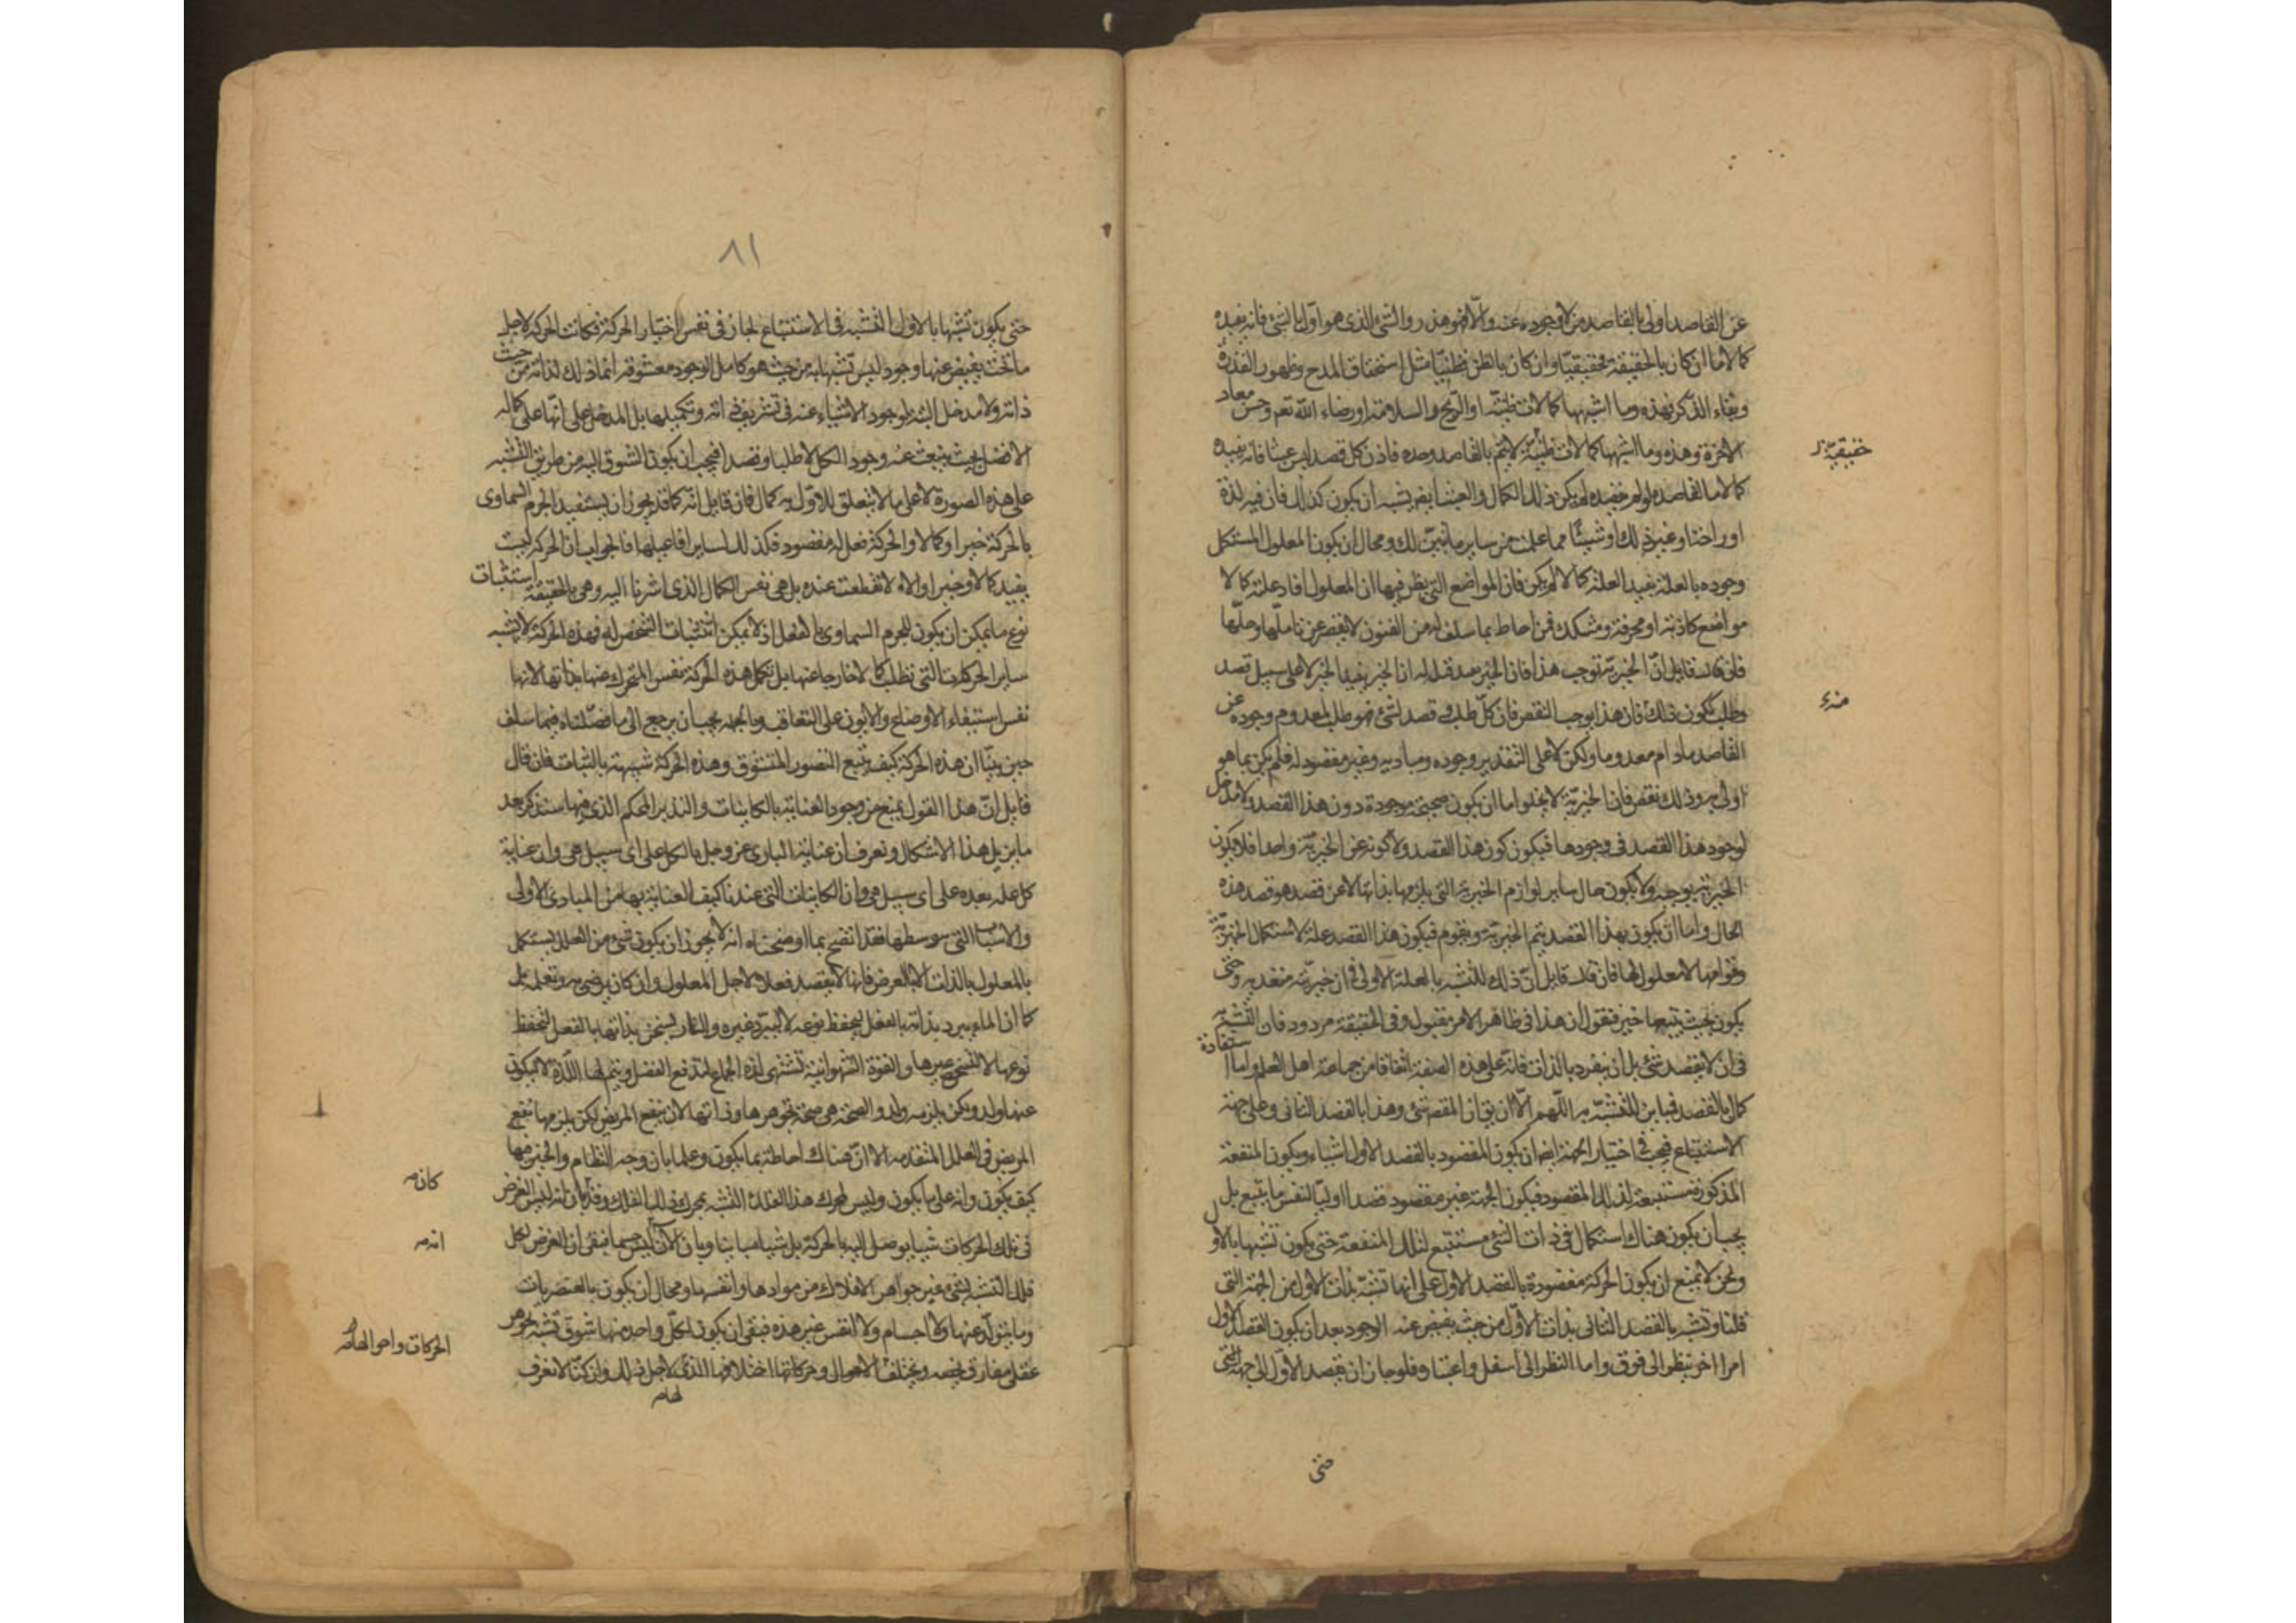 عن القاصد اولى بالقاصد من لا وجوده عنه والا فهو هذر والشئ الذى هو اولى بالشئ فانه يفيده
كمالا ما ان كان بالحقيقة فحقيقيا وان كان بالظن فظنيا مثل استحقاق المدح وظهور القدرة
وبقاء الذكر فهذه وما اشبهها كمالات ظنية او الربح والسلامة او رضاء الله تعم وحسن معاد
الاخرة وهذه وما اشبهها كمالات لا تتم بالقاصد وحده فاذن كل قصد ليس عبثا فانه يفيده
حقيقية
كمالا ما لقاصده لو لم يقصده لم يكن ذلك الكمال والعبث ايضا يشبه ان يكون كذلك فان فيه لذة
او راحة او غير ذلك او شيئا مما علمت من ساير ما تبين لك ومحال ان يكون المعلول المستكمل
وجوده بالعلة يفيد العلة كمالا لم يكن فان المواضع التى يظن فيها ان المعلول افاد علته كمالا
مواضع كاذبة او محرفة ومثلك فمن احاط بما سلف له من الفنون لا يقصر عن تاملها وحلها
فان قال قايل ان الخيرية توجب هذا فان الخير يفيد الخير لا على سبيل قصد
وطلب ليكون ذلك فان هذا يوجب النقص فان كل طلب وقصد لشئ فهو طلب لمعدوم وجوده عن
القاصد مادام معدوما ولكن لا على التقدير وجوده وغير مقصود له فلم يكن بما هو
اولى به وذلك نقص فان الخيرية لا يخلوا اما ان يكون صحيحة موجودة دون هذا القصد ولا مدخل
لوجود هذا القصد فى وجودها فيكون كون هذا القصد ولا كونه عن الخيرية واحدا فلا يكون
الخيرية توجبه ولا يكون حال ساير لوازم الخيرية التى يلزمها بذاتها لا عن قصد هو قصد هذه
الحال واما ان يكون بهذا القصد يتم الخيرية ويقوم فيكون هذا القصد علة لاستكمال الخيرية
وقوامها لا معلولا لها فان قال قايل ان ذلك للتشبه بالعلة الاولى فى ان خيريته متعدية وحتى
يكون بحيث يتبعها خير فنقول ان هذا فى ظاهر الامر مقبول وفى الحقيقة مردود فان التشبه به
فى ان لا يقصد شئ بل ان ينفرد بالذات فانه على هذه الصفة اتفاقا من جماعة اهل العلم واما استفادة
كمال بالقصد فمباين للتشبه به اللهم الا ان يق ان المقصود شئ وهذا بالقصد الثانى وعلى جهة
الاستتباع فيجب فى اختيار الجهة ايضا ان يكون المقصود بالقصد الاول اشياء ويكون المنفعة
المذكورة مستتبعة لذلك المقصود فيكون الجهة غير مقصودة قصدا اوليا لنفس ما يتبع بل
يجب ان يكون هناك استكمال فى ذات الشئ مستتبع لتلك المنفعة حتى يكون تشبها بالاول
ونحن لا نمنع ان يكون الحركة مقصودة بالقصد الاول على انها تشبه بذات الاول من الجهة التى
قلنا وتشبه بالقصد الثانى بذات الاول من حيث يفيض عنه الوجود بعد ان يكون القصد الاول
امرا اخر ينظر الى فوق واما النظر الى اسفل واعتبارا فلو جاز ان يقصد الاول الى جهة حتى
حتى
٨١
حتى يكون تشبها بالاول التشبه فى الاستتباع لجاز فى نفس اختيار الحركة فكانت الحركة لاجل
ما تحت يفيض عنها وجود ليس تشبها به من حيث هو كامل الوجود معشوقه انما ذلك لذاته من حيث
ذاته ولا مدخل البتة لوجود الاشياء عنه فى تشريف ذاته وتكميلها بل المدخل على انها على كماله
الافضل بحيث ينبعث عنه وجود الكل لا طلبا وقصدا فيجب ان يكون الشوق اليه من طريق التشبه
على هذه الصورة لا على ما لا يتعلق للاول به كمال فان قايل انه كما قد يجوز ان يستفيد الجرم السماوى
بالحركة خيرا وكمالا والحركة فعل له مقصود فكذلك ساير افاعيلها فالجواب ان الحركة ليست
يفيد كمالا وخيرا والا لانقطعت عنده بل هى نفس الكمال الذى اشرنا اليه وهى بالحقيقة استثبات
نوع ما يمكن ان يكون للجرم السماوى بالفعل اذ لا يمكن استثبات الشخص له فهذه الحركة لا تشبه
ساير الحركات التى تطلب كمالا خارجا عنها بل تكمل هذه الحركة نفس المتحرك عنها بذاتها لانها
نفس استبقاء الاوضاع والايون على التعاقب وبالجملة يجب ان يرجع الى ما فصلناه فيما سلف
حين بينا ان هذه الحركة كيف يتبع التصور المتشوق وهذه الحركة شبيهة بالثبات فان قال
قايل ان هذا القول يمنع من وجود العناية بالكاينات والتدبير المحكم الذى فيها سنذكر بعد
ما يزيل هذا الاشكال ونعرف ان عناية البارى عز وجل بالكل على اى سبيل هى وان عناية
كل علة بعده على اى سبيل هى وان الكاينات التى عندنا كيف العناية بها من المبادى الاولى
والاسباب التى توسطها فقد اتضح بما اوضحناه انه لا يجوز ان يكون شئ من العلل يستكمل
بالمعلول بالذات الا بالعرض فانها لا يقصد فعلا لاجل المعلول وان كان يرضى به وتعلمه بل
كما ان الماء يبرد بذاته بالفعل ليحفظ نوعه لا ليبرد غيره والنار يسخن بذاتها بالفعل لتحفظ
نوعها لا لتسخن غيرها والقوة الشهوانية تشتهى لذة الجماع لتدفع الفضل ويتم لها اللذة لا ليكون
عنها ولد ولكن يلزمه ولد والصحة هى صحة بجوهرها وذاتها لا لان ينفع المريض لكن يلزمها نفع
المريض فى العلل المتقدمة الا ان هناك احاطة بما يكون وعلما بان وجه النظام والخير فيها
كيف يكون وانه على ما يكون وليس فى تلك فاذا كان الامر
كان
فى تلك الحركات شيئا يوصل اليه بالحركة بل شيئا مباينا وبان الان انه ليس جسما فبقى ان الغرض لكل
انه
فلك التشبه بشئ غير جواهر الافلاك من موادها وانفسها ومحال ان يكون بالعنصريات
وما يتولد عنها ولا اجسام ولا انفس غير هذه فبقى ان يكون لكل واحد منها شوق تشبه بجوهر
الحركات واحوالها
عقلى مفارق يخصه ويختلف الاحوال وحركاتها اختلافها الذى لاجل ذلك وان كنا لا نعرف
لها